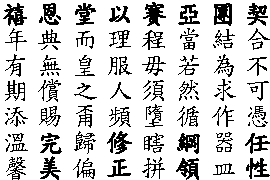 禧年有期添溫馨
恩典無償賜完美
堂而皇之甭歸偏
以理服人頻修正
賽程毋須墮瞎拼
亞當若然循綱領
團結為求作器皿
契合不可憑任性